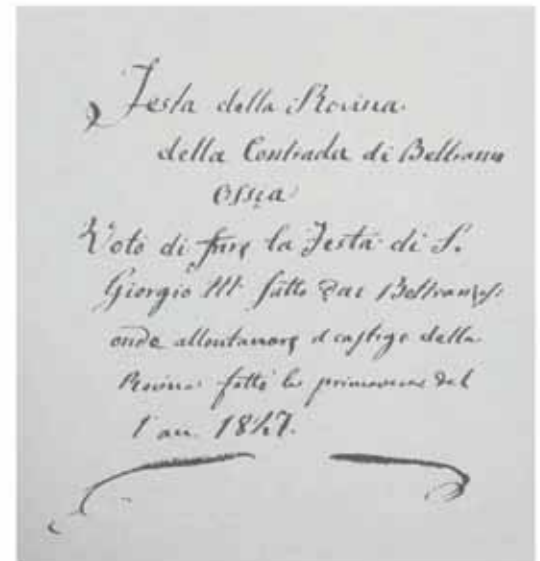 Festa della Rovina
della Contrada di Beltrame
Ossia
Voto di fare la Festa di S.
Giorgio M. fatto dai
onde allontanare il castigo della
Rovina fatto la primavera del
l'an. 1847.